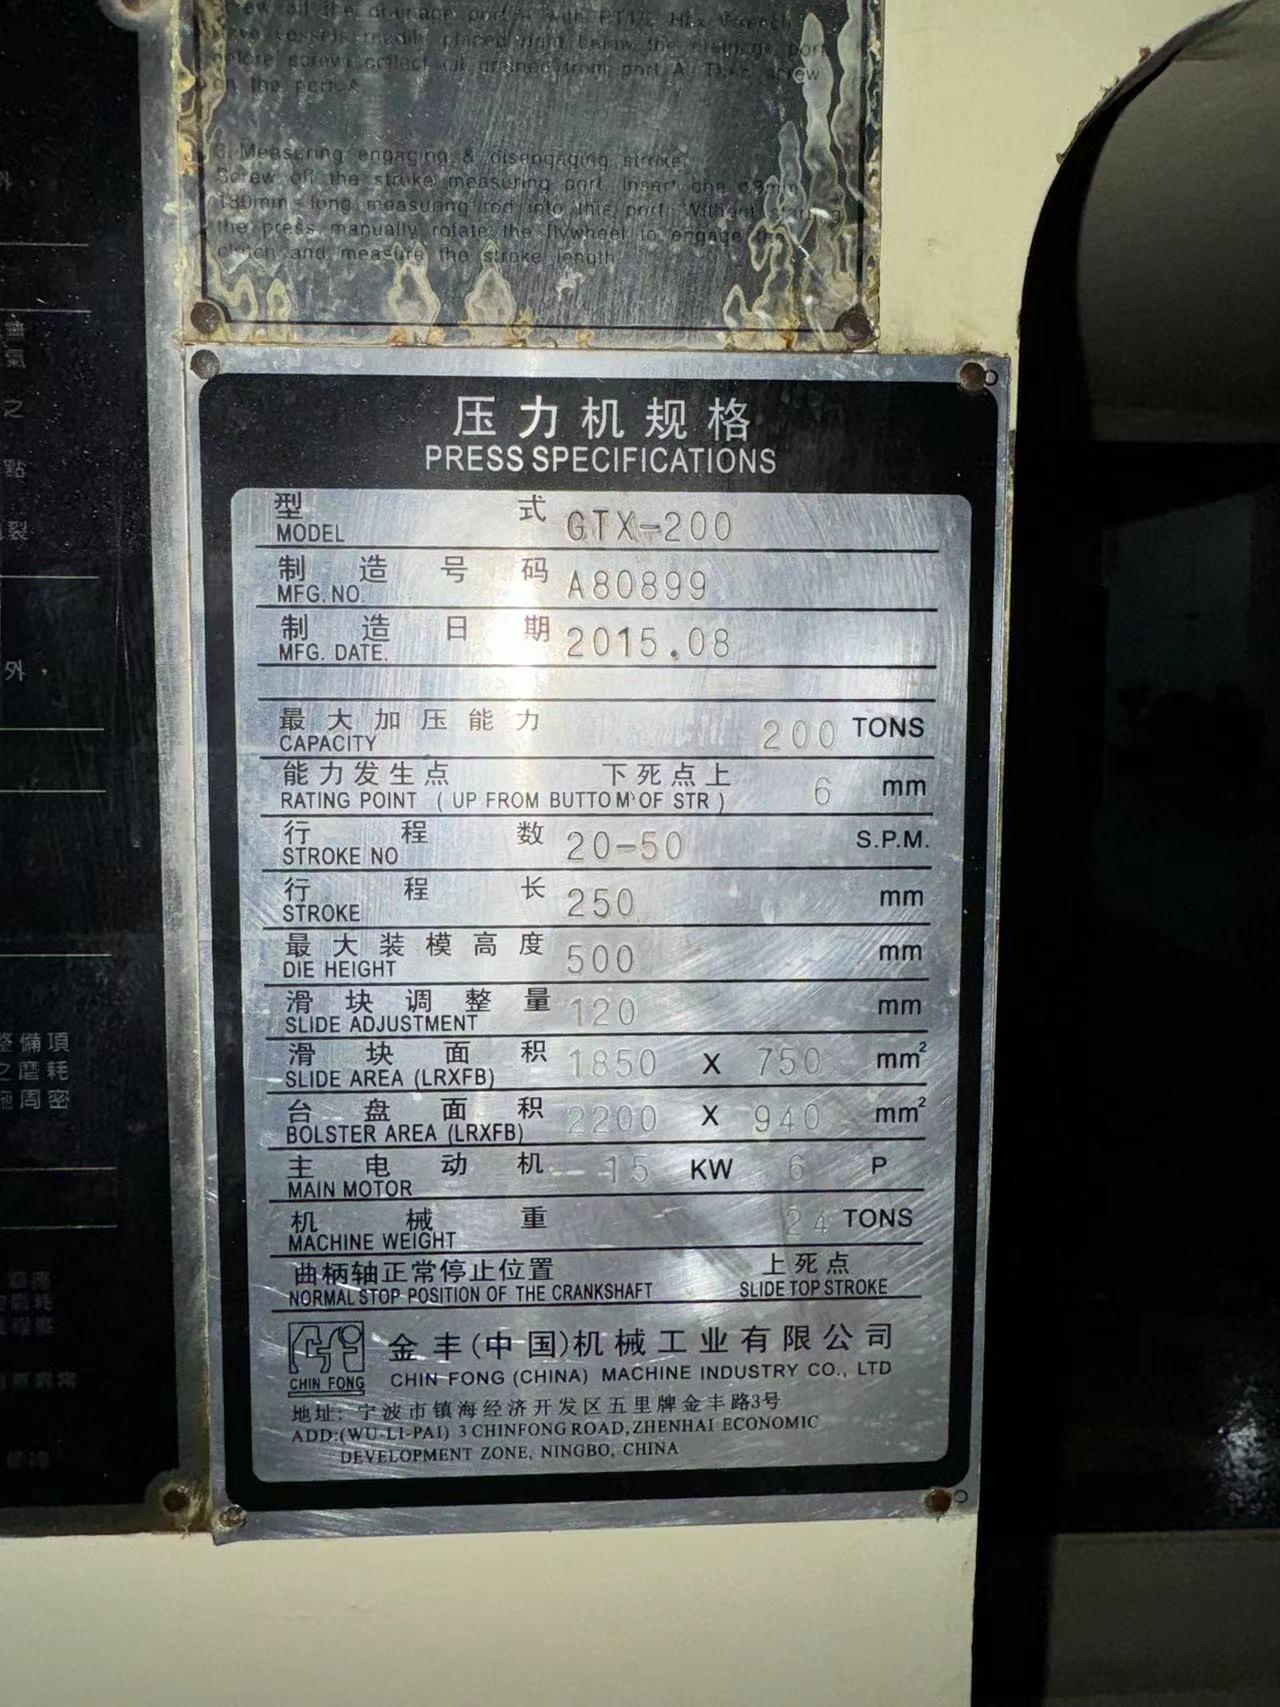 below the drainage port
before screw collect oil drained from port A. Then screw
on the port A
Measuring engaging & disengaging stroke
Screw off the stroke measuring port. Insert one
180mm-long measuring rod into this port. Without starting
the press, manually rotate the flywheel to engage the
clutch and measure the stroke length.
外，
氣
之
點
裂
外，
整備項
之磨耗
周密
压力机规格
PRESS SPECIFICATIONS
型 式 GTX-200
MODEL
制造号码 A80899
MFG. NO.
制造日期 2015.08
MFG. DATE.
最大加压能力 200 TONS
CAPACITY
能力发生点 下死点上 6 mm
RATING POINT ( UP FROM BUTTOM OF STR )
行程数 20-50 S.P.M.
STROKE NO
行程长 250 mm
STROKE
最大装模高度 500 mm
DIE HEIGHT
滑块调整量 120 mm
SLIDE ADJUSTMENT
滑块面积 1850 X 750 mm²
SLIDE AREA (LRXFB)
台盘面积 2200 X 940 mm²
BOLSTER AREA (LRXFB)
主电动机 15 KW 6 P
MAIN MOTOR
机械重 24 TONS
MACHINE WEIGHT
曲柄轴正常停止位置 上死点
NORMAL STOP POSITION OF THE CRANKSHAFT SLIDE TOP STROKE
金丰(中国)机械工业有限公司
CHIN FONG
CHIN FONG (CHINA) MACHINE INDUSTRY CO., LTD
地址: 宁波市镇海经济开发区五里牌金丰路3号
ADD:(WU-LI-PAI) 3 CHINFONG ROAD, ZHENHAI ECONOMIC
DEVELOPMENT ZONE, NINGBO, CHINA